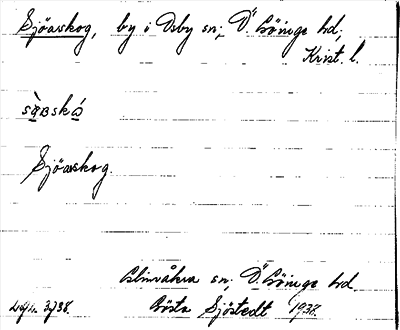 Sjöaskog, by i Osby sn; Ö. Göinge hd;
Krist. l.
Sjöaskog.
Glimåkra sn; Ö. Göinge hd.
Gösta Sjöstedt 1938.